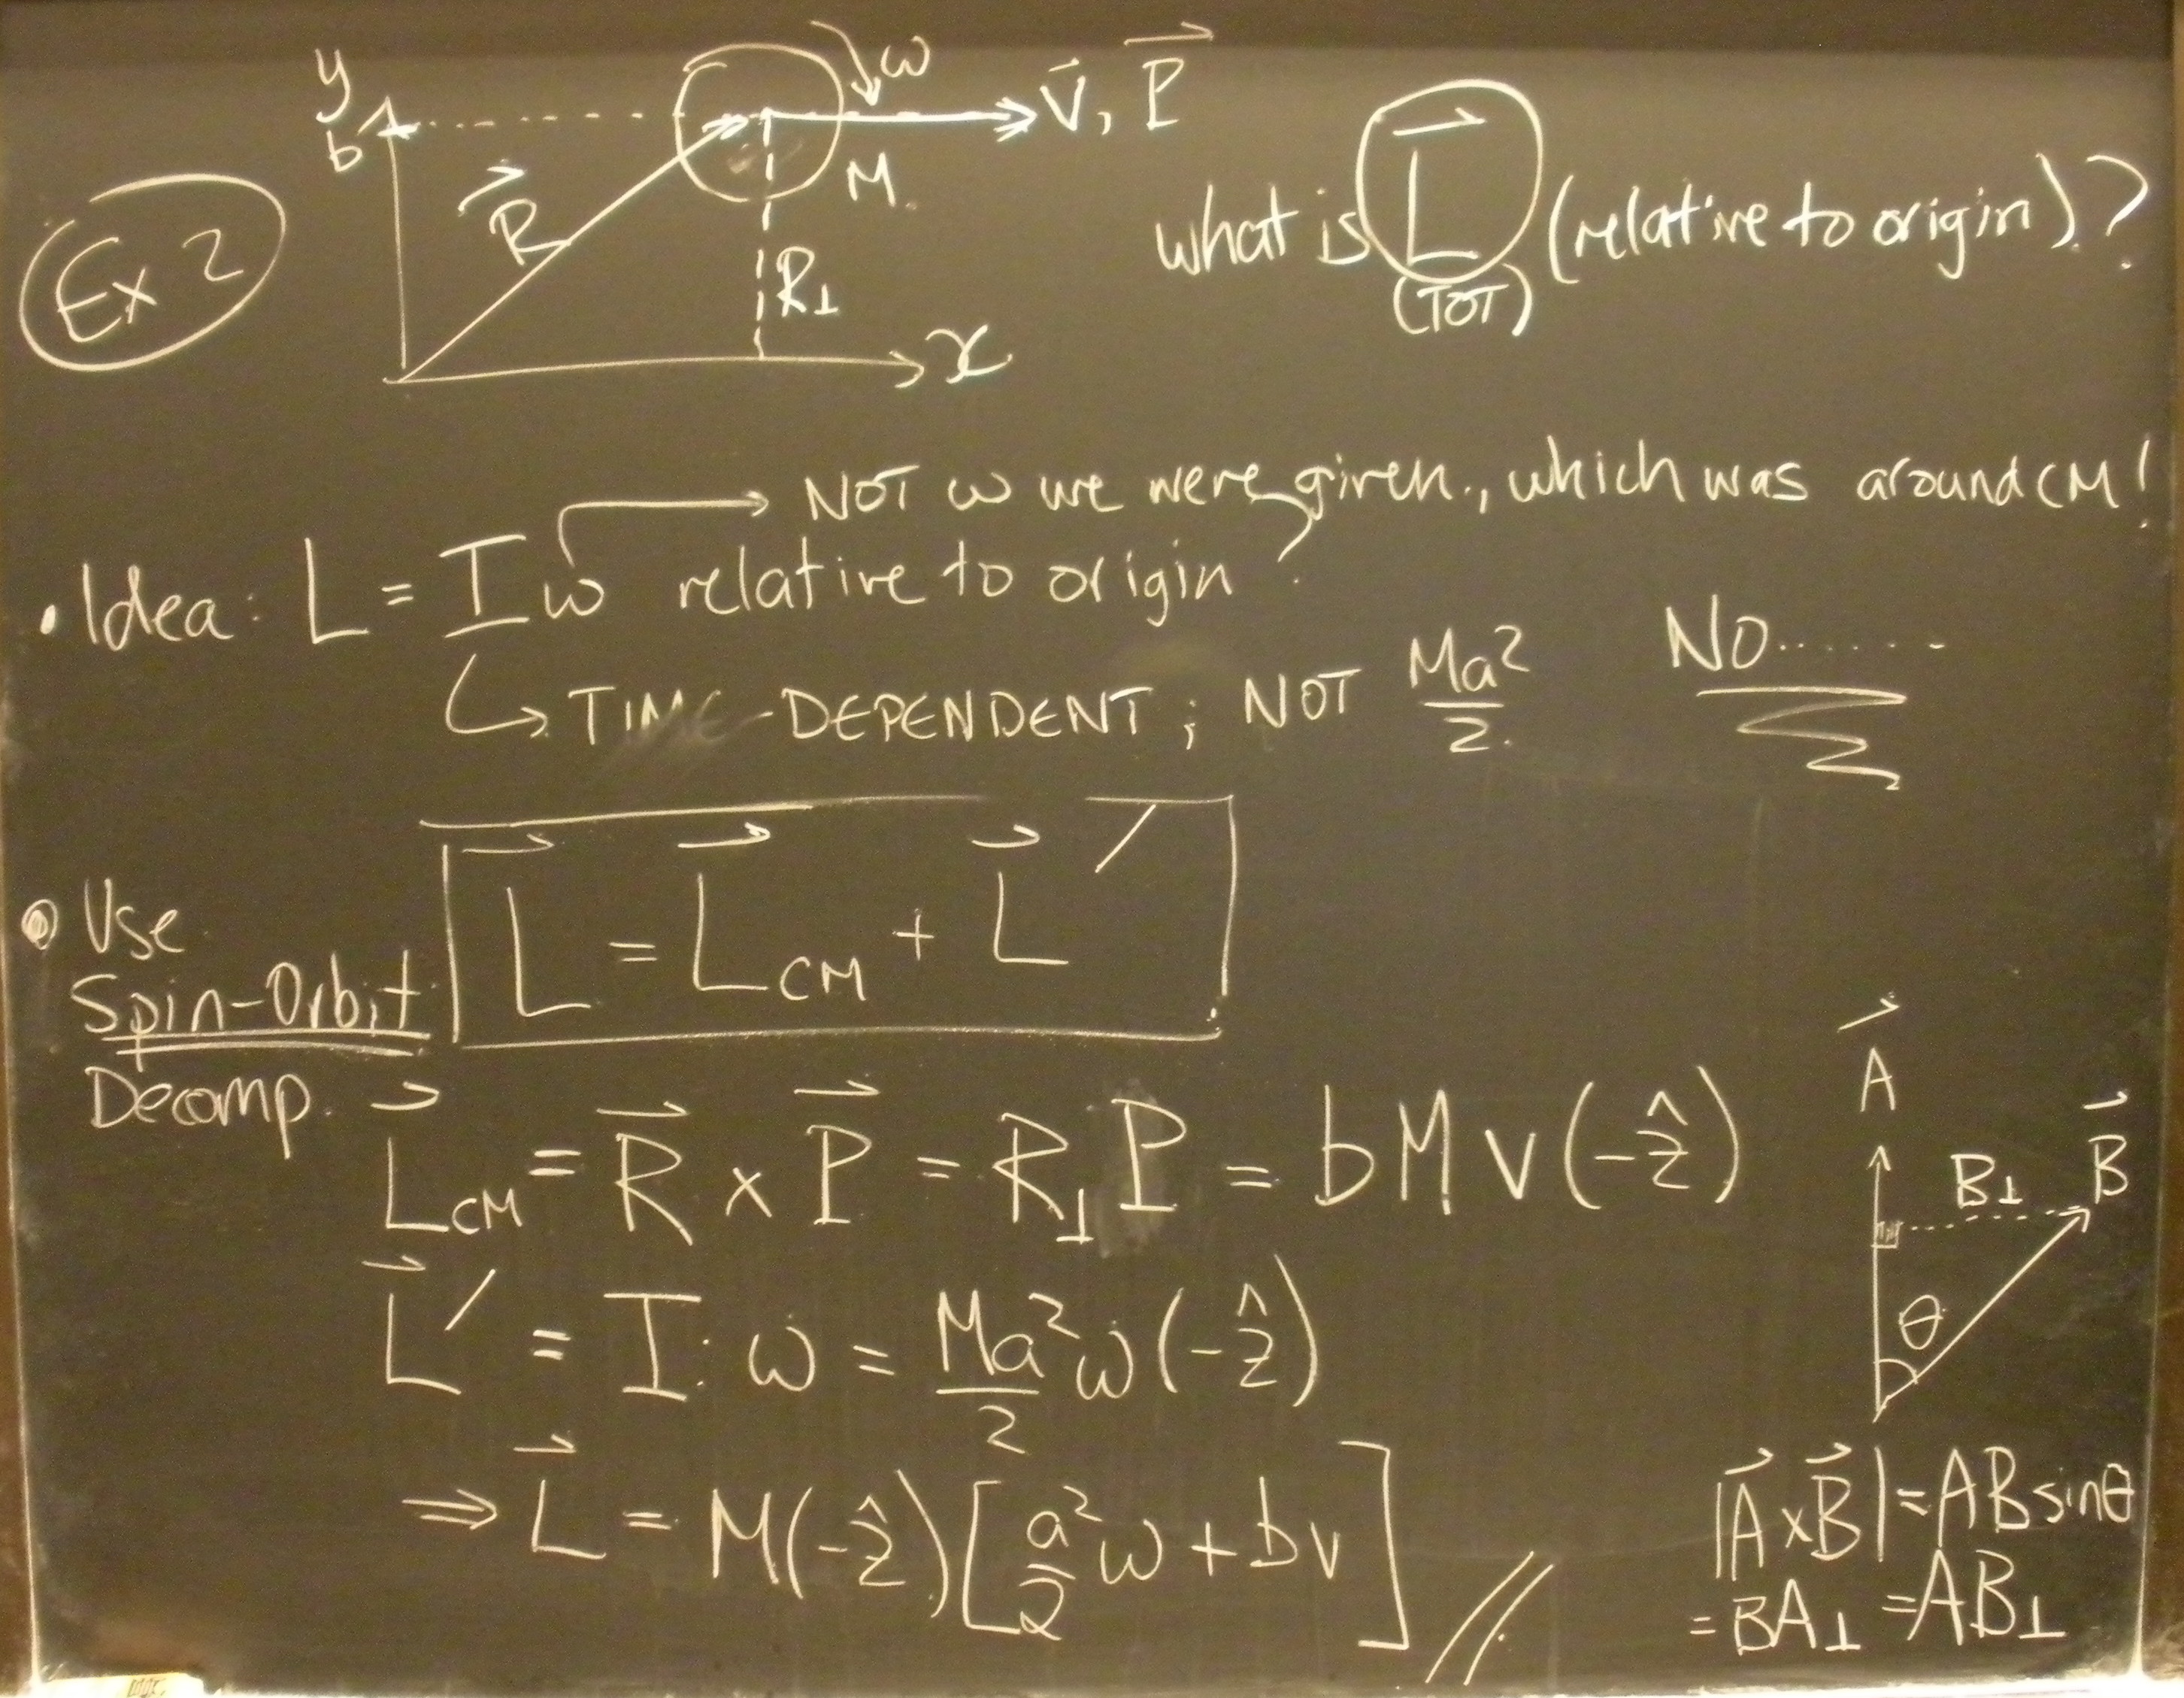 Ex 2
y
b
R⃗
ω
v⃗, P⃗
M
R⊥
x
what is L⃗ (relative to origin)?
(TOT)
NOT ω we were given, which was around CM!
• Idea: L = Iω relative to origin?
↳ TIME-DEPENDENT; NOT Ma²/2 NO.......
• Use Spin-Orbit Decomp.
L⃗ = L⃗CM + L⃗′
L⃗CM = R⃗ × P⃗ = R⊥P = bMv(-ẑ)
L⃗′ = I·ω = Ma²/2 ω(-ẑ)
⇒ L⃗ = M(-ẑ)[a²/2 ω + bv] //
A⃗
B⊥
B⃗
θ
|A⃗×B⃗| = AB sinθ
= BA⊥ = AB⊥